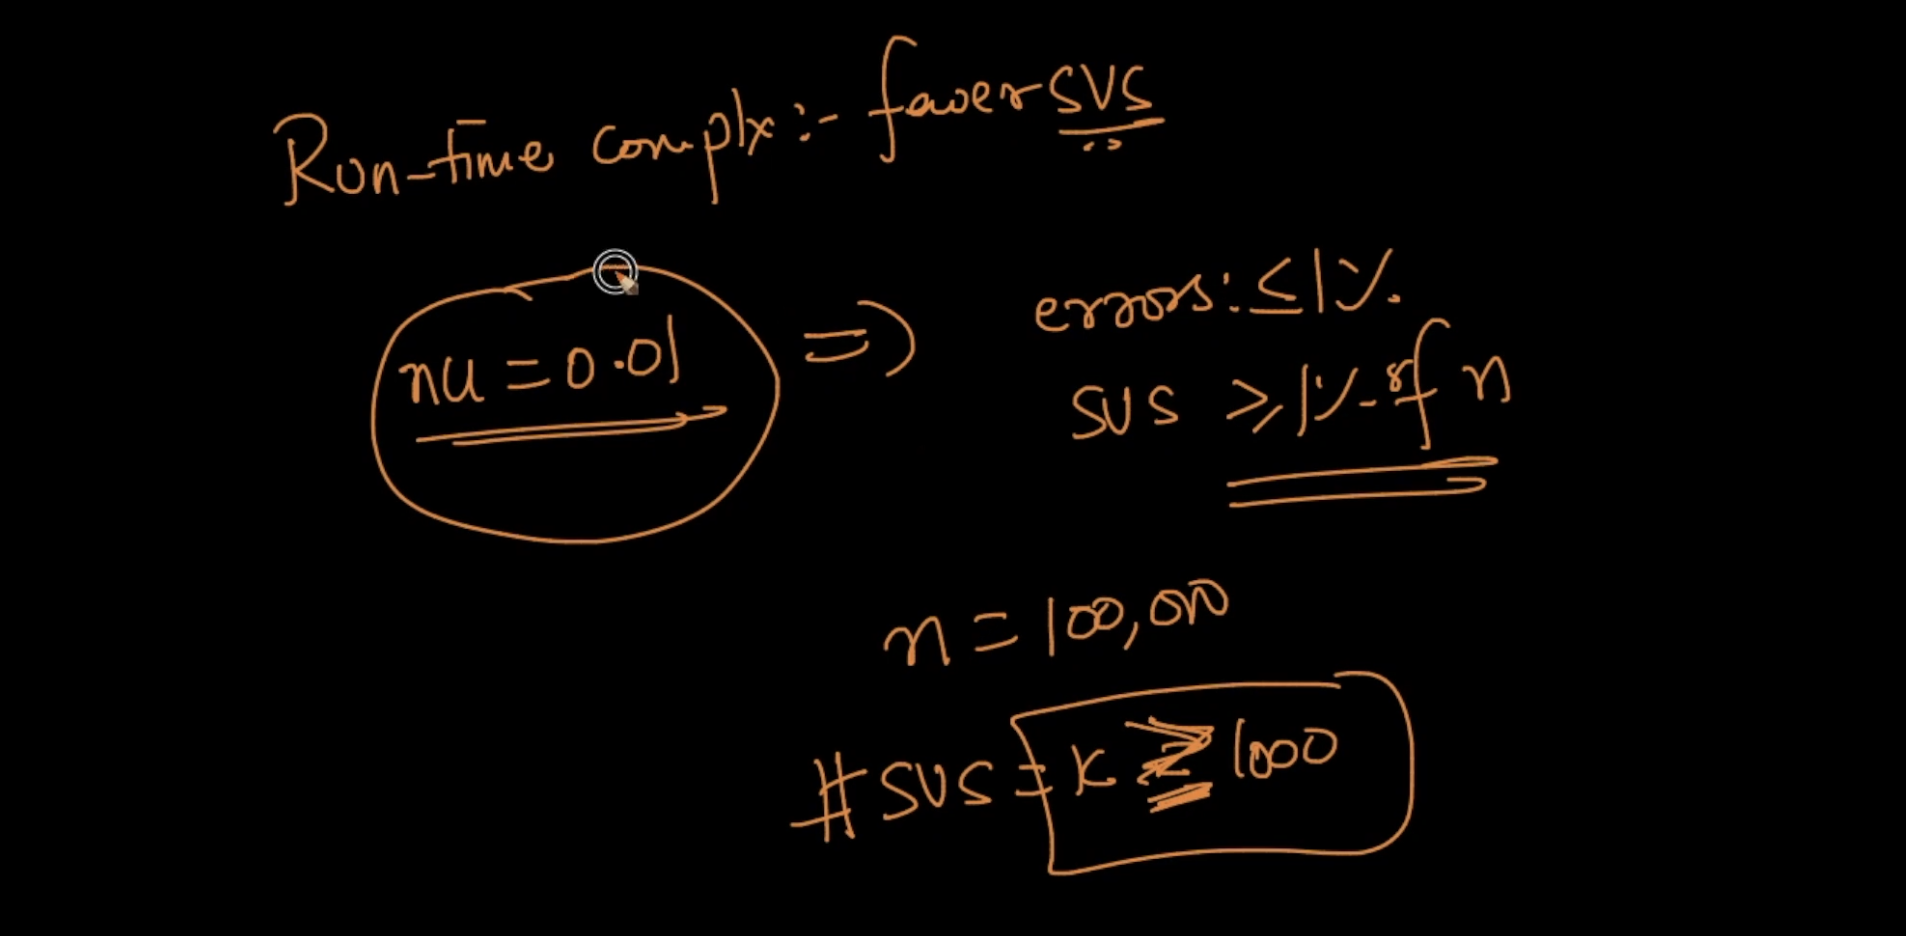 Run-time complx :- fewer SVS
nu = 0.01 => errors: ≤ 1%.
SVS ≥ 1% of n
n = 100,000
#SVS = K ≥ 1000